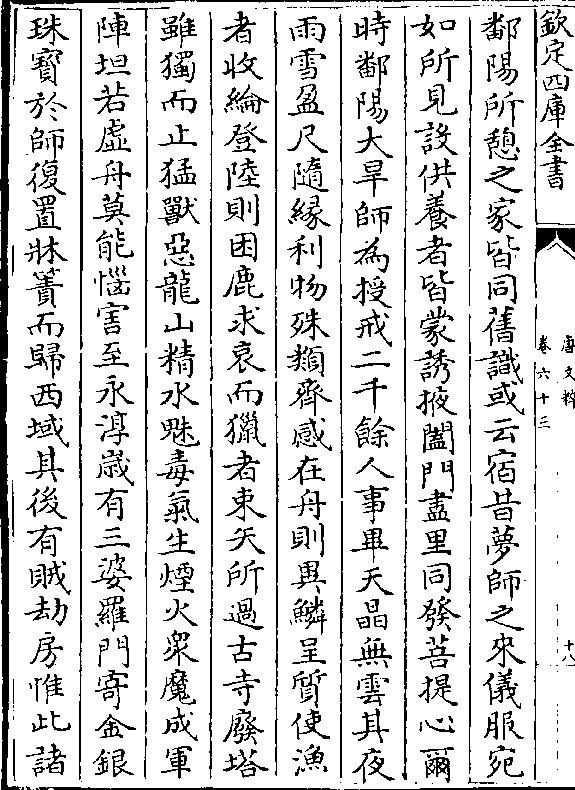 欽定四庫全書
唐文粹
卷六十三
十八
鄱陽所憩之家皆同舊識或云宿昔夢師之來儀服宛
如所見設供養者皆蒙誘掖闔門盡里同發菩提心爾
時鄱陽大旱師為授戒二千餘人事畢天晶無雲其夜
雨雪盈尺隨緣利物殊類齊感在舟則異鱗呈質使漁
者收綸登陸則困鹿求哀而獵者束矢所過古寺廢塔
雖獨而止猛獸惡龍山精水魅毒氣生煙火衆魔成軍
陣坦若虛舟莫能惱害至永淳嵗有三婆羅門寄金銀
珠寳於師復置牀簀而歸西域其後有賊劫房惟此諸